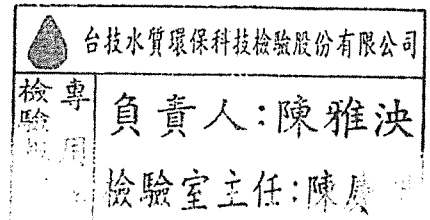 台技水質環保科技檢驗股份有限公司
專用
檢驗
負責人：陳雅泱
檢驗室主任：陳